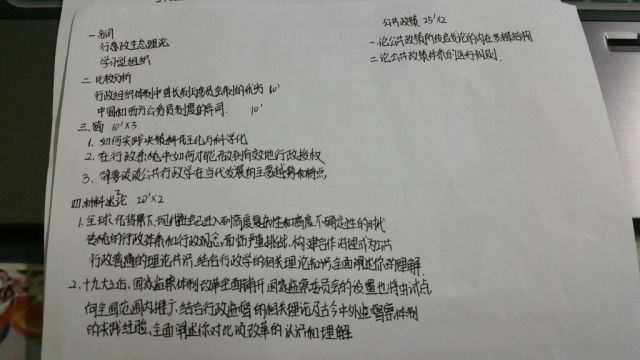 一.名词
行政生态理论
学习型组织
二.比较分析
行政组织体制中首长制与委员会制的优劣 10'
中国和西方公务员制度的异同. 10'
三.简 10'×3
1.如何实践决策科民主化与科学化
2.在行政系统中如何才能有效地行政授权
3.简要谈谈公共行政学在当代发展的主要趋势和特点
四.材料论 20'×2
1.全球化背景下,现代社会已进入到高度复杂性和高度不确定性的时代
传统的行政体系和行政观念,面临严重挑战,构建合作治理式为公共
行政普遍的理论共识,结合行政学的相关理论知识,全面阐述你的理解.
2.十九大之后,国家监察体制改革全面铺开国家监察委员会的设置也将由试点
向全国范围内推广,结合行政监督的相关理论及古今中外监督察体制
的实践经验,全面阐述你对此项改革的认识和理解
公共政策 25'×2
一.论公共政策的内在逻辑结构
二.论公共政策体系的运行规则